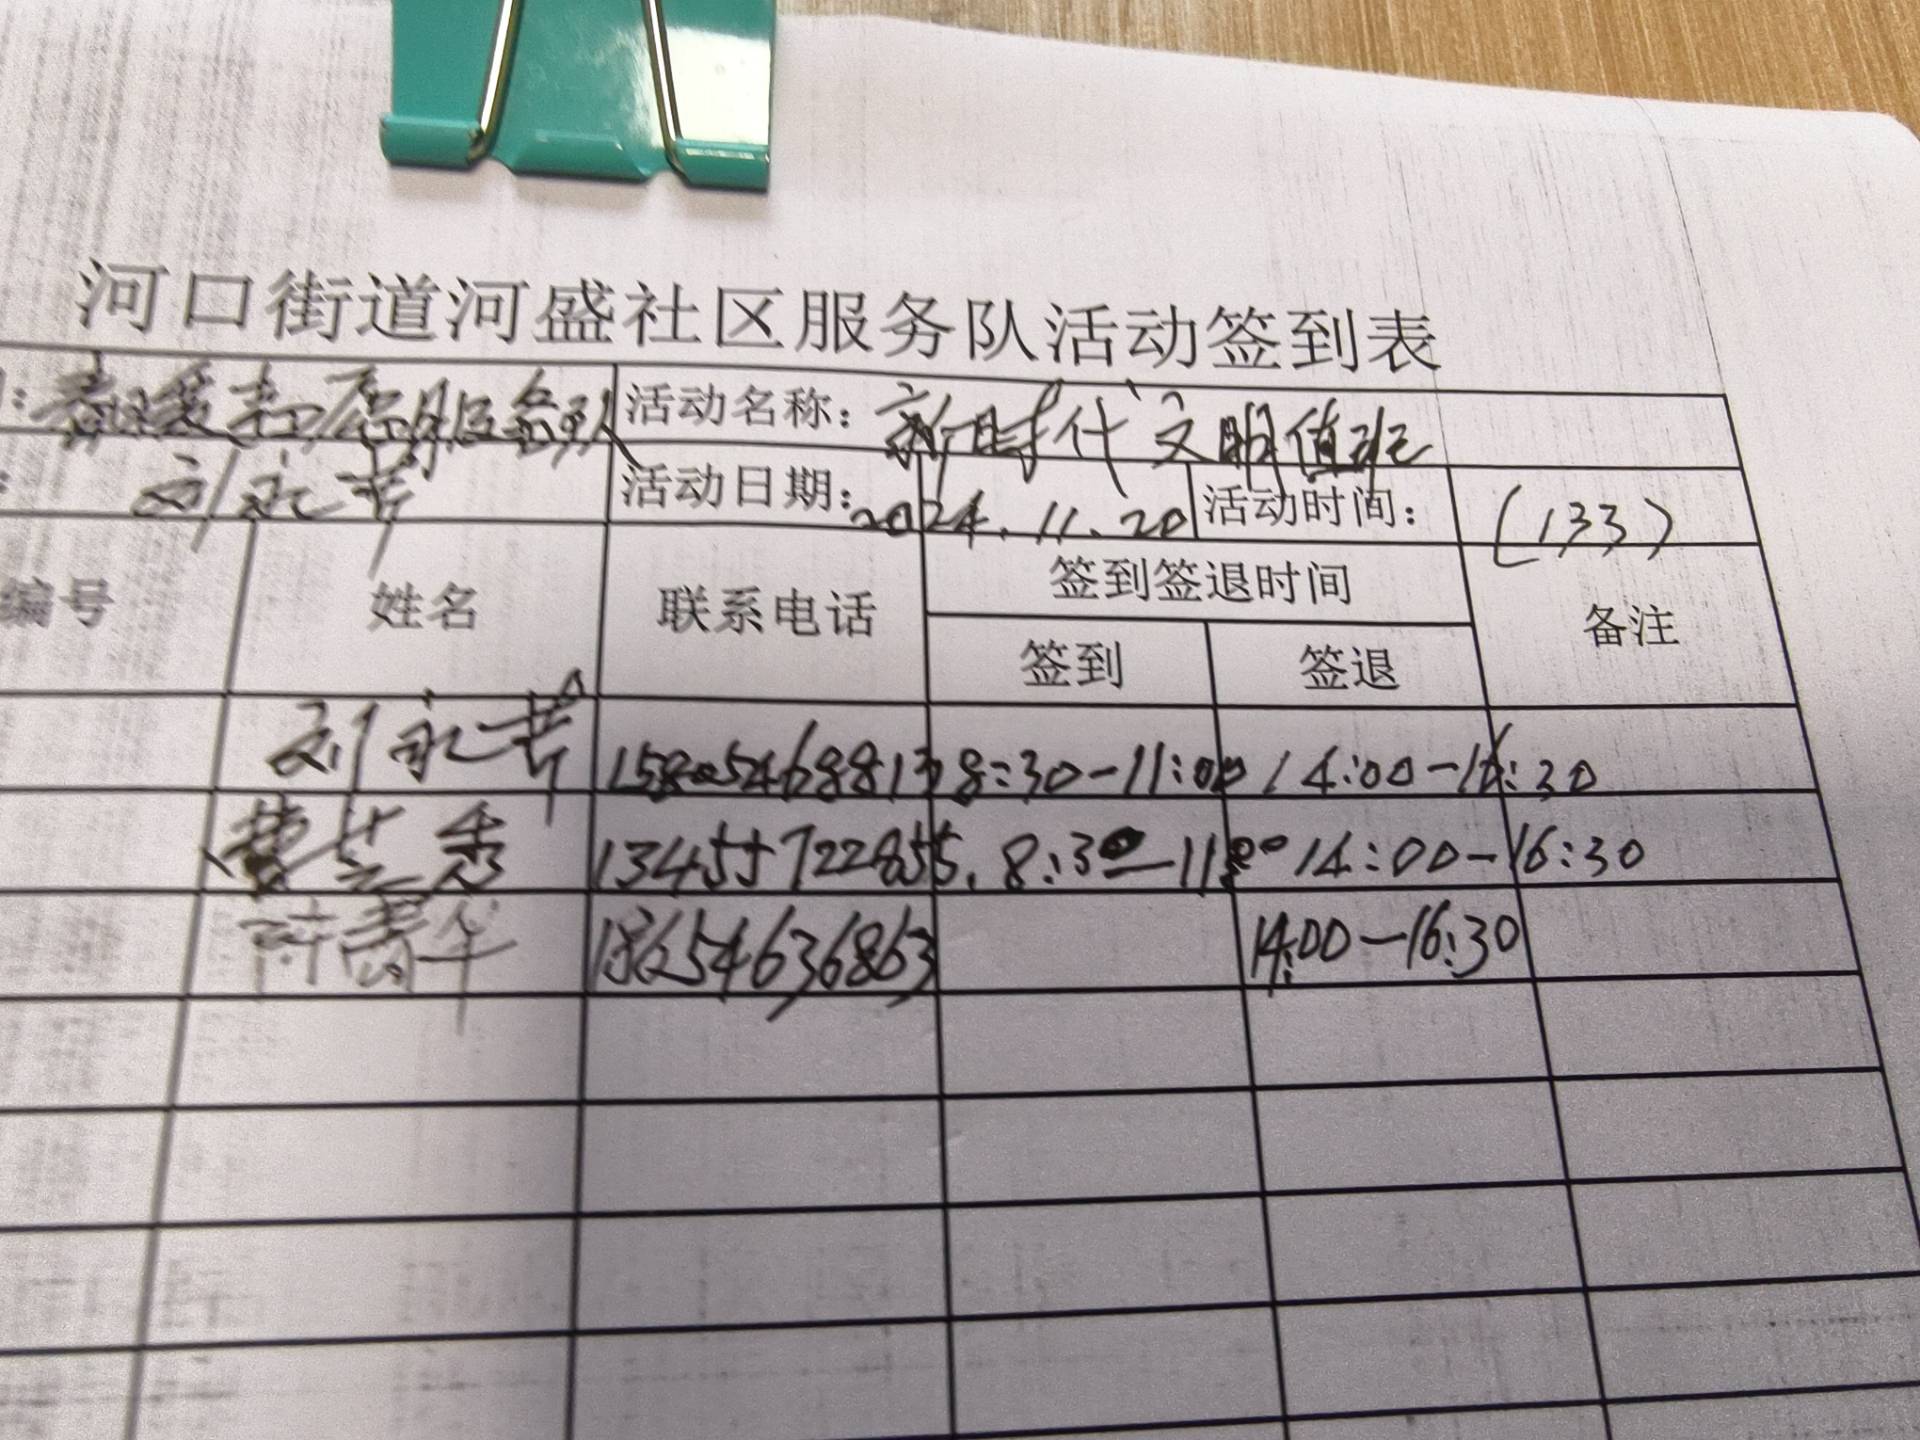 河口街道河盛社区服务队活动签到表
: 春暖志愿服务队 活动名称: 新时代文明值班
: 刘永芳 活动日期: 2024.11.20 活动时间: (133)
编号 姓名 联系电话 签到签退时间 备注
签到 签退
刘永芳 15805468813 8:30-11:00 14:00-16:30
兰香 13455722855. 8:30-11:00 14:00-16:30
18654636863 14:00-16:30